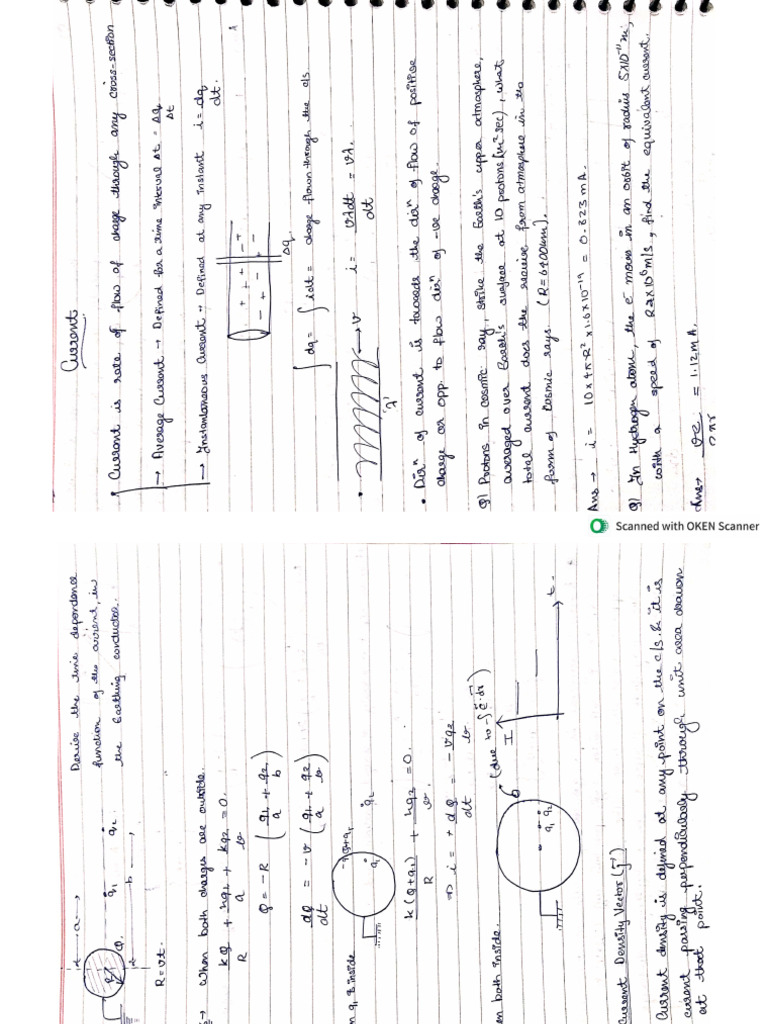 Current
• Current is rate of flow of charge through any cross-section
→ Average Current → Defined for a time interval Δt = Δq/Δt
→ Instantaneous Current → Defined at any instant i = dq/dt.
Δq
∫dq = ∫idt = charge flown through the c/s.
• → v i = vλdt/dt = vλ.
'λ'
• Dirⁿ of current is towards the dirⁿ of flow of positive
charge or opp. to flow dirⁿ of -ve charge.
Q) Protons in cosmic ray, strike the Earth's upper atmosphere,
averaged over Earth's surface at 10 protons/(m² sec), what
total current does the receive from atmosphere in the
form of Cosmic rays. (R=6400km).
Ans → i = 10 × 4π R² × 1.6×10⁻¹⁹ = 0.823 mA.
Q) In Hydrogen atom, the e⁻ moves in an orbit of radius 5×10⁻¹¹ m,
with a speed of 2.2×10⁶ m/s, find the equivalent current.
Ans → ve/2πr = 1.12 mA.
Scanned with OKEN Scanner
Derive the time dependence
function of the current, in
the Earthing conductor.
a
q₁ q₂
Q
b
R = vt.
→ When both charges are outside.
kQ/R + kq₁/a + kq₂/b = 0.
Q = -R (q₁/a + q₂/b)
dQ/dt = -v (q₁/a + q₂/b)
q₁ is inside
q₁ q₂
k(Q+q₁)/R + kq₂/b = 0.
⇒ i = + dQ/dt = -vq₂/b
both inside.
q₁ q₂
I
t
Current Density Vector (j⃗)
Current density is defined at any point on the c/s. & it is
current passing perpendicularly through unit area drawn
at that point.